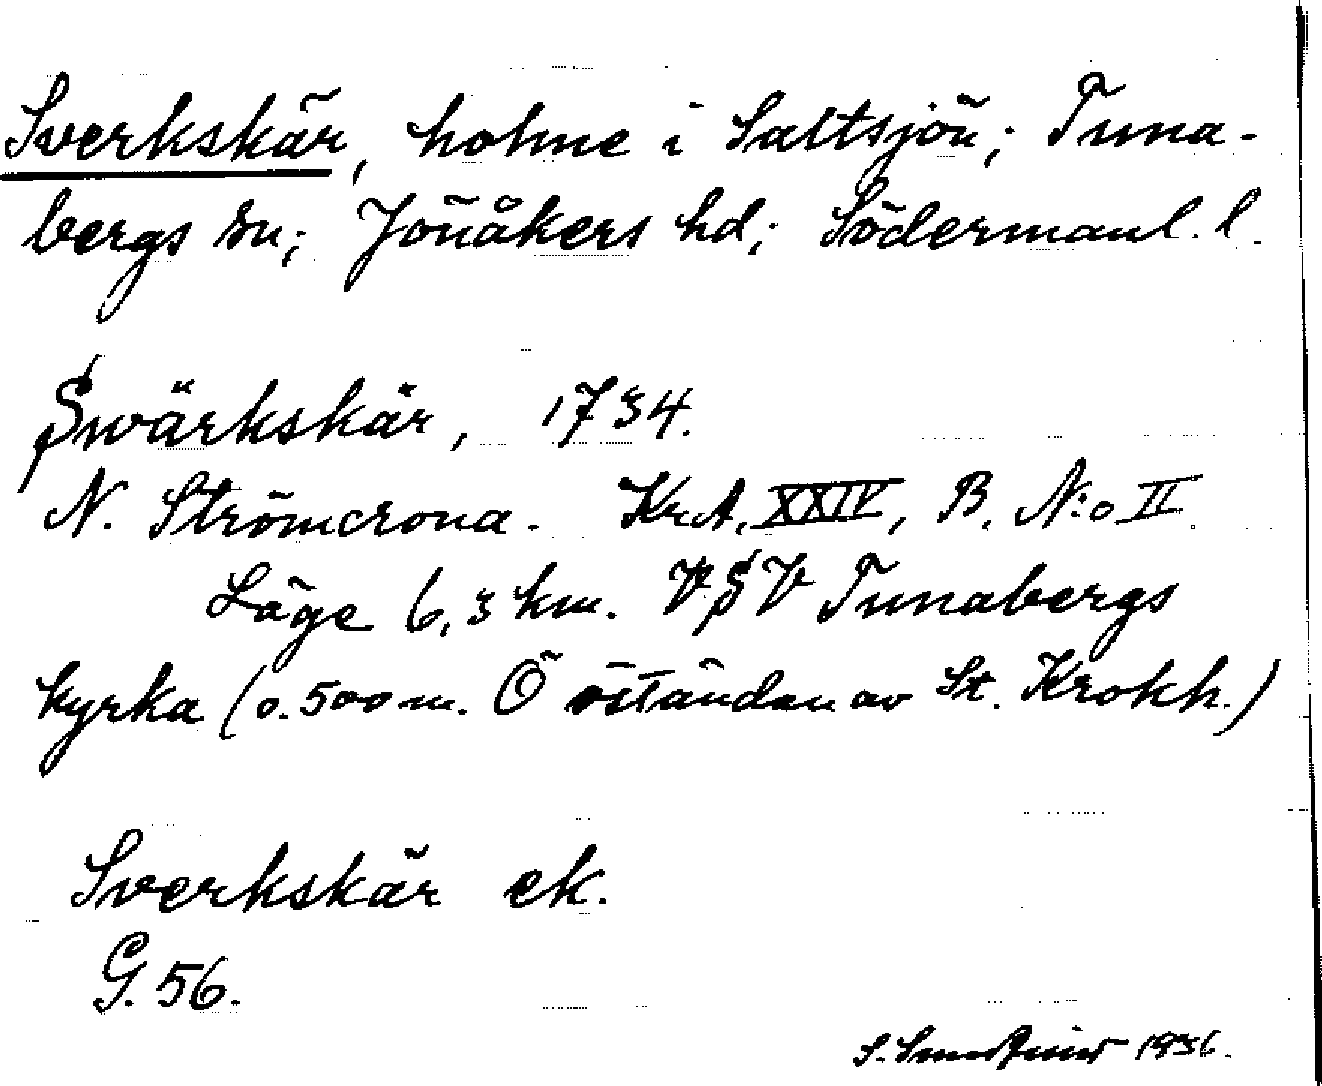 Sverkskär, holme i Saltsjön; Tuna-
bergs sn; Jönåkers hd; Södermanl. l.
Swärkskär, 1734.
N. Strömcrona. Kr.A. XXIV, B. N:o II.
Läge 6,3 km. V§V Tunabergs
kyrka (o. 500 m. Ö öständan av St. Krokh.)
Sverkskär ek.
G. 56.
S. 1936.